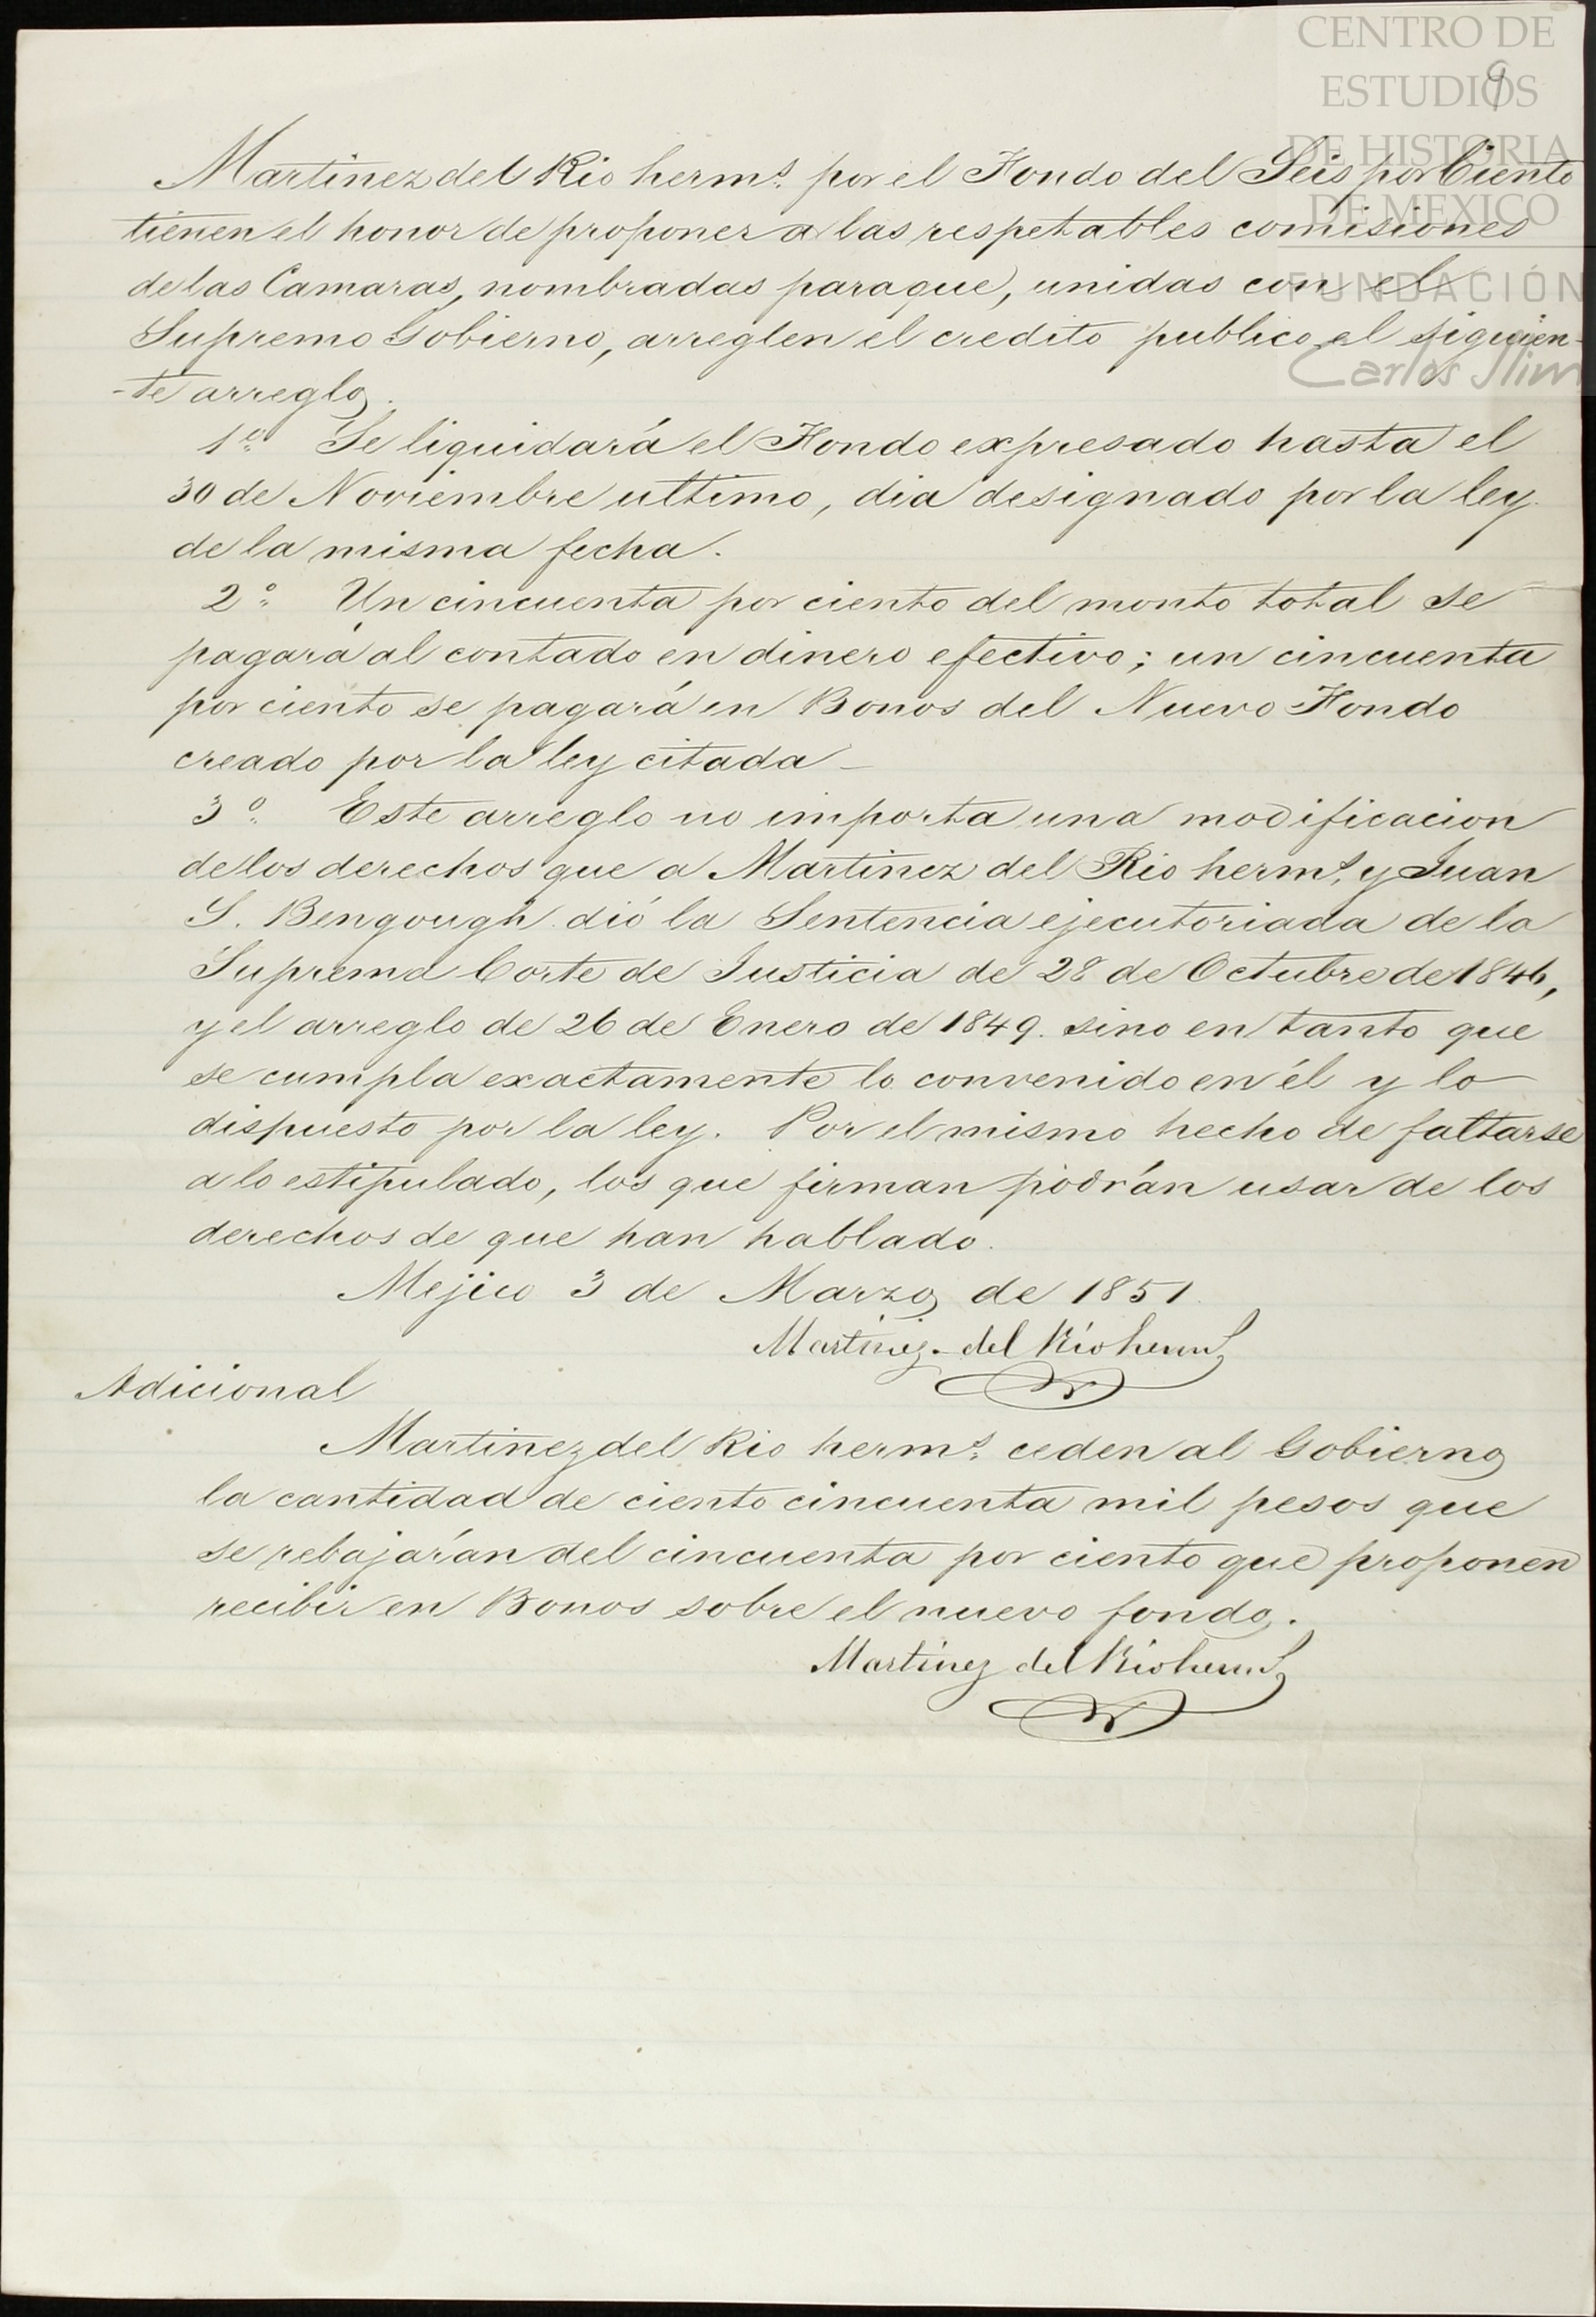 CENTRO DE
ESTUDIOS
DE HISTORIA
DE MEXICO
FUNDACIÓN
Carlos Slim
9
Martinez del Rio herm.s por el Fondo del Seis por Ciento
tienen el honor de proponer a las respetables comisiones
de las Camaras, nombradas paraque, unidas con el
Supremo Gobierno, arreglen el credito publico el siguien-
-te arreglo.
1.o Se liquidará el Fondo expresado hasta el
30 de Noviembre ultimo, dia designado por la ley
de la misma fecha.
2.o Un cincuenta por ciento del monto total se
pagará al contado en dinero efectivo; un cincuenta
por ciento se pagará en Bonos del Nuevo Fondo
creado por la ley citada_
3.o Este arreglo no importa una modificacion
de los derechos que a Martinez del Rio herm.s y Juan
S. Bengough dió la Sentencia ejecutoriada de la
Suprema Corte de Justicia de 28 de Octubre de 1846,
y el arreglo de 26 de Enero de 1849. sino en tanto que
se cumpla exactamente lo convenido en él y lo
dispuesto por la ley. Por el mismo hecho de faltarse
a lo estipulado, los que firman podrán usar de los
derechos de que han hablado.
Mejico 3 de Marzo de 1851.
Martinez del Rio herms
Adicional
Martinez del Rio herm.s ceden al Gobierno
la cantidad de ciento cincuenta mil pesos que
se rebajarán del cincuenta por ciento que proponen
recibir en Bonos sobre el nuevo fondo.
Martinez del Rio herms